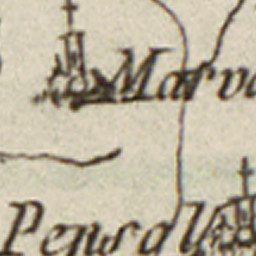 Marv
Pensal